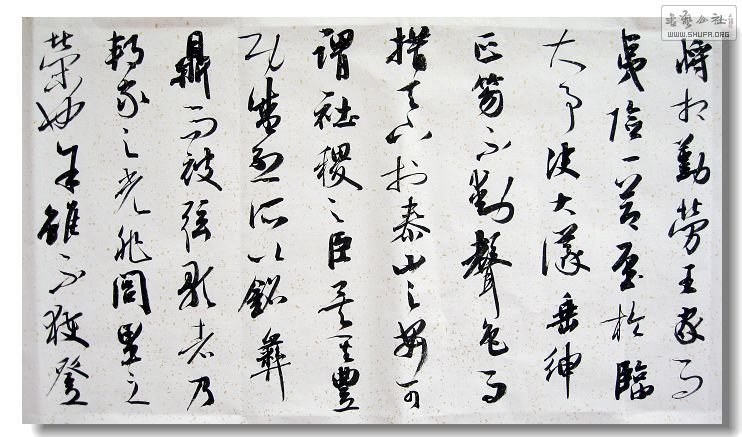 將相勤勞王家而
夷險一節至於臨
大事決大議垂紳
正笏不動聲色而
措天下於泰山之安可
謂社稷之臣矣其豐
功盛烈所以銘彝
鼎而被弦歌者乃
邦家之光非閭里之
榮也余雖不獲登
书艺公社
WWW.SHUFA.ORG